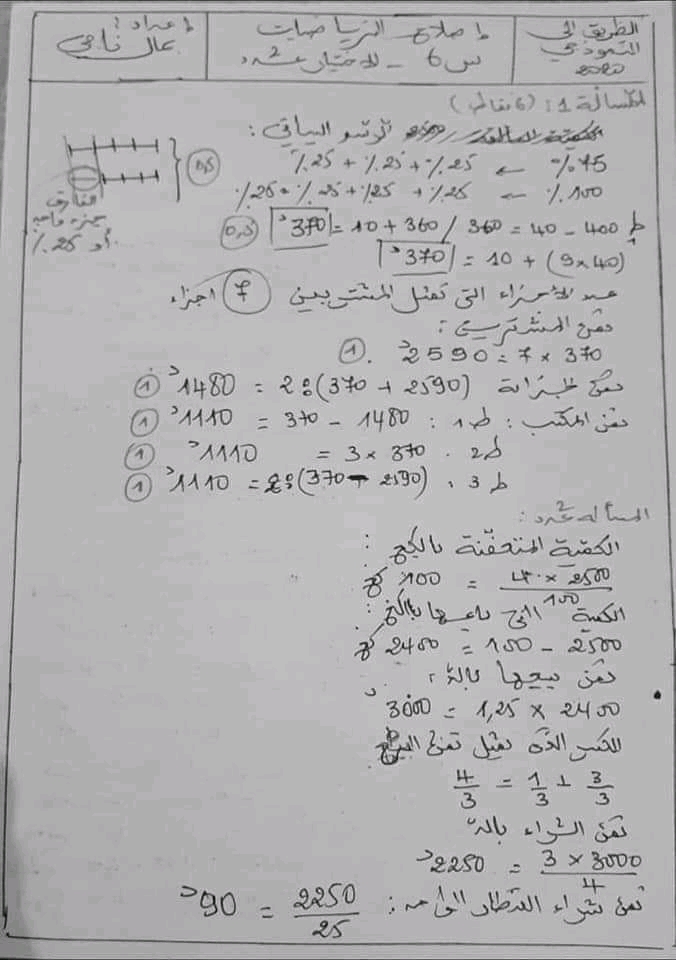 الطريق إلى
النموذجي
إصلاح الرياضيات
س 6 - الاختبار عدد
إعداد:
المسألة 1: (6 نقاط)
الرسم البياني:
75% ← 25% + 25% + 25%
100% ← 25% + 25% + 25% + 25%
0,5
الفارق
يمثل
أو 25%
ط1 400 - 40 = 360 / 360 + 10 = 370د 0,5
(40×9) + 10 = 370د
عدد الأجزاء التي تمثل المشتريين 7 أجزاء
ثمن المشتريين:
370 × 7 = 2590د. 1
ثمن الخزانة (2590 + 370):2 = 1480د 1
ثمن المكتب: ط1: 1480 - 370 = 1110د 1
ط2. 370 × 3 = 1110د 1
ط3. (2590 - 370):2 = 1110د 1
المسألة عدد 2:
الكمية المتعفنة بالكغ:
2500 × 4 / 100 = 100 كغ
الكمية التي باعها بالكغ:
2500 - 100 = 2400 كغ
ثمن بيعها بالد:
2400 × 1,25 = 3000د
الكسر الذي يمثل ثمن البيع
3/3 + 1/3 = 4/3
ثمن الشراء بالد
3000 × 3 / 4 = 2250د
ثمن شراء القنطار الواحد: 2250/25 = 90د